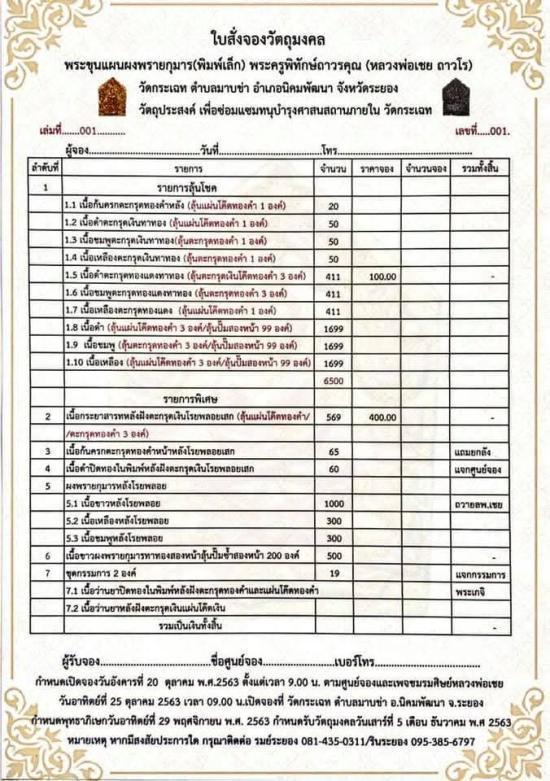 ใบสั่งจองวัตถุมงคล
พระขุนแผนผงพรายกุมาร(พิมพ์เล็ก) พระครูพิทักษ์ถาวรคุณ (หลวงพ่อเชย ถาวโร)
วัดกระเฉท ตำบลมาบข่า อำเภอนิคมพัฒนา จังหวัดระยอง
วัตถุประสงค์ เพื่อซ่อมแซมทนุบำรุงศาสนสถานภายใน วัดกระเฉท
เล่มที่.......001........... เลขที่.....001.
ผู้จอง.................................วันที่.................................โทร.................................
ลำดับที่ รายการ จำนวน ราคาจอง จำนวนจอง รวมทั้งสิ้น
1 รายการลุ้นโชค
1.1 เนื้อก้นครกตะกรุดทองคำหลัง (ลุ้นแผ่นโค๊ดทองคำ 1 องค์) 20
1.2 เนื้อดำตะกรุดเงินทาทอง (ลุ้นแผ่นโค๊ดทองคำ 1 องค์) 50
1.3 เนื้อชมพูตะกรุดเงินทาทอง(ลุ้นตะกรุดทองคำ 1 องค์) 50
1.4 เนื้อเหลืองตะกรุดเงินทาทอง (ลุ้นตะกรุดทองคำ 1 องค์) 50
1.5 เนื้อดำตะกรุดทองแดงทาทอง (ลุ้นตะกรุดเงินโค๊ดทองคำ 3 องค์) 411 100.00 -
1.6 เนื้อชมพูตะกรุดทองแดงทาทอง (ลุ้นตะกรุดทองคำ 3 องค์) 411
1.7 เนื้อเหลืองตะกรุดทองแดง (ลุ้นแผ่นโค๊ดทองคำ 1 องค์) 411
1.8 เนื้อดำ (ลุ้นแผ่นโค๊ดทองคำ 3 องค์/ลุ้นปั๊มสองหน้า 99 องค์) 1699
1.9 เนื้อชมพู (ลุ้นตะกรุดทองคำ 3 องค์/ลุ้นปั๊มสองหน้า 99 องค์) 1699
1.10 เนื้อเหลือง (ลุ้นแผ่นโค๊ดทองคำ 3 องค์/ลุ้นปั๊มสองหน้า 99 องค์) 1699
6500
รายการพิเศษ
2 เนื้อกระยาสารทหลังฝังตะกรุดเงินโรยพลอยเสก (ลุ้นแผ่นโค๊ดทองคำ/ 569 400.00 -
/ตะกรุดทองคำ 3 องค์)
3 เนื้อก้นครกตะกรุดทองคำหน้าหลังโรยพลอยเสก 65 แถมยกลัง
4 เนื้อดำปิดทองในพิมพ์หลังฝังตะกรุดเงินโรยพลอยเสก 60 แจกศูนย์จอง
5 ผงพรายกุมารหลังโรยพลอย
5.1 เนื้อขาวหลังโรยพลอย 1000 ถวายลพ.เชย
5.2 เนื้อเหลืองหลังโรยพลอย 300
5.3 เนื้อชมพูหลังโรยพลอย 300
6 เนื้อขาวผงพรายกุมารทาทองสองหน้าลุ้นปั๊มซ้ำสองหน้า 200 องค์ 500 -
7 ชุดกรรมการ 2 องค์ 19 แจกกรรมการ
7.1 เนื้อว่านยาปิดทองในพิมพ์หลังฝังตะกรุดทองคำและแผ่นโค๊ดทองคำ พระเกจิ
7.2 เนื้อว่านยาหลังฝังตะกรุดเงินแผ่นโค๊ดเงิน
รวมเป็นเงินทั้งสิ้น -
ผู้รับจอง.................................ชื่อศูนย์จอง.................................เบอร์โทร.................................
กำหนดเปิดจองวันอังคารที่ 20 ตุลาคม พ.ศ.2563 ตั้งแต่เวลา 9.00 น. ตามศูนย์จองและเพจชมรมศิษย์หลวงพ่อเชย
วันอาทิตย์ที่ 25 ตุลาคม 2563 เวลา 09.00 น.เปิดจองที่ วัดกระเฉท ตำบลมาบข่า อ.นิคมพัฒนา จ.ระยอง
กำหนดพุทธาภิเษกวันอาทิตย์ที่ 29 พฤศจิกายน พ.ศ. 2563 กำหนดรับวัตถุมงคลวันเสาร์ที่ 5 เดือน ธันวาคม พ.ศ 2563
หมายเหตุ หากมีสงสัยประการใด กรุณาติดต่อ รมย์ระยอง 081-435-0311/รินระยอง 095-385-6797